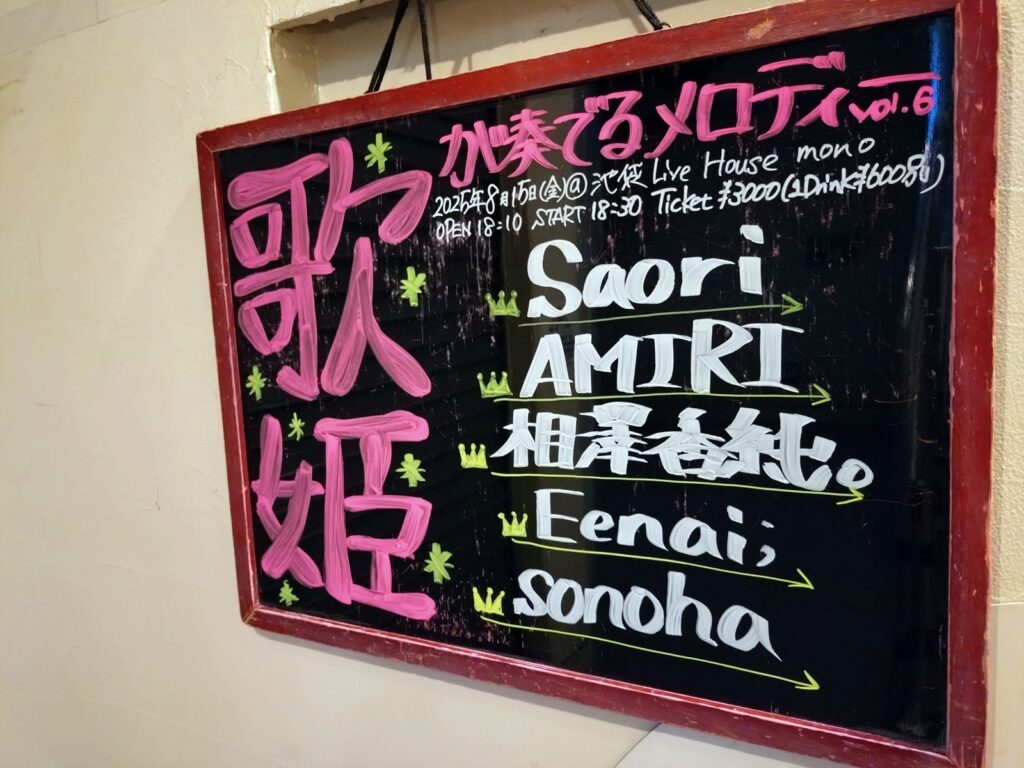 歌姫
が奏でるメロディー vol.6
2025年8月15日(金)@池袋 Live House mono
OPEN 18:10 START 18:30 Ticket ¥3000(1Drink¥600別)
Saori
AMIRI
相澤香純。
Eenai;
sonoha